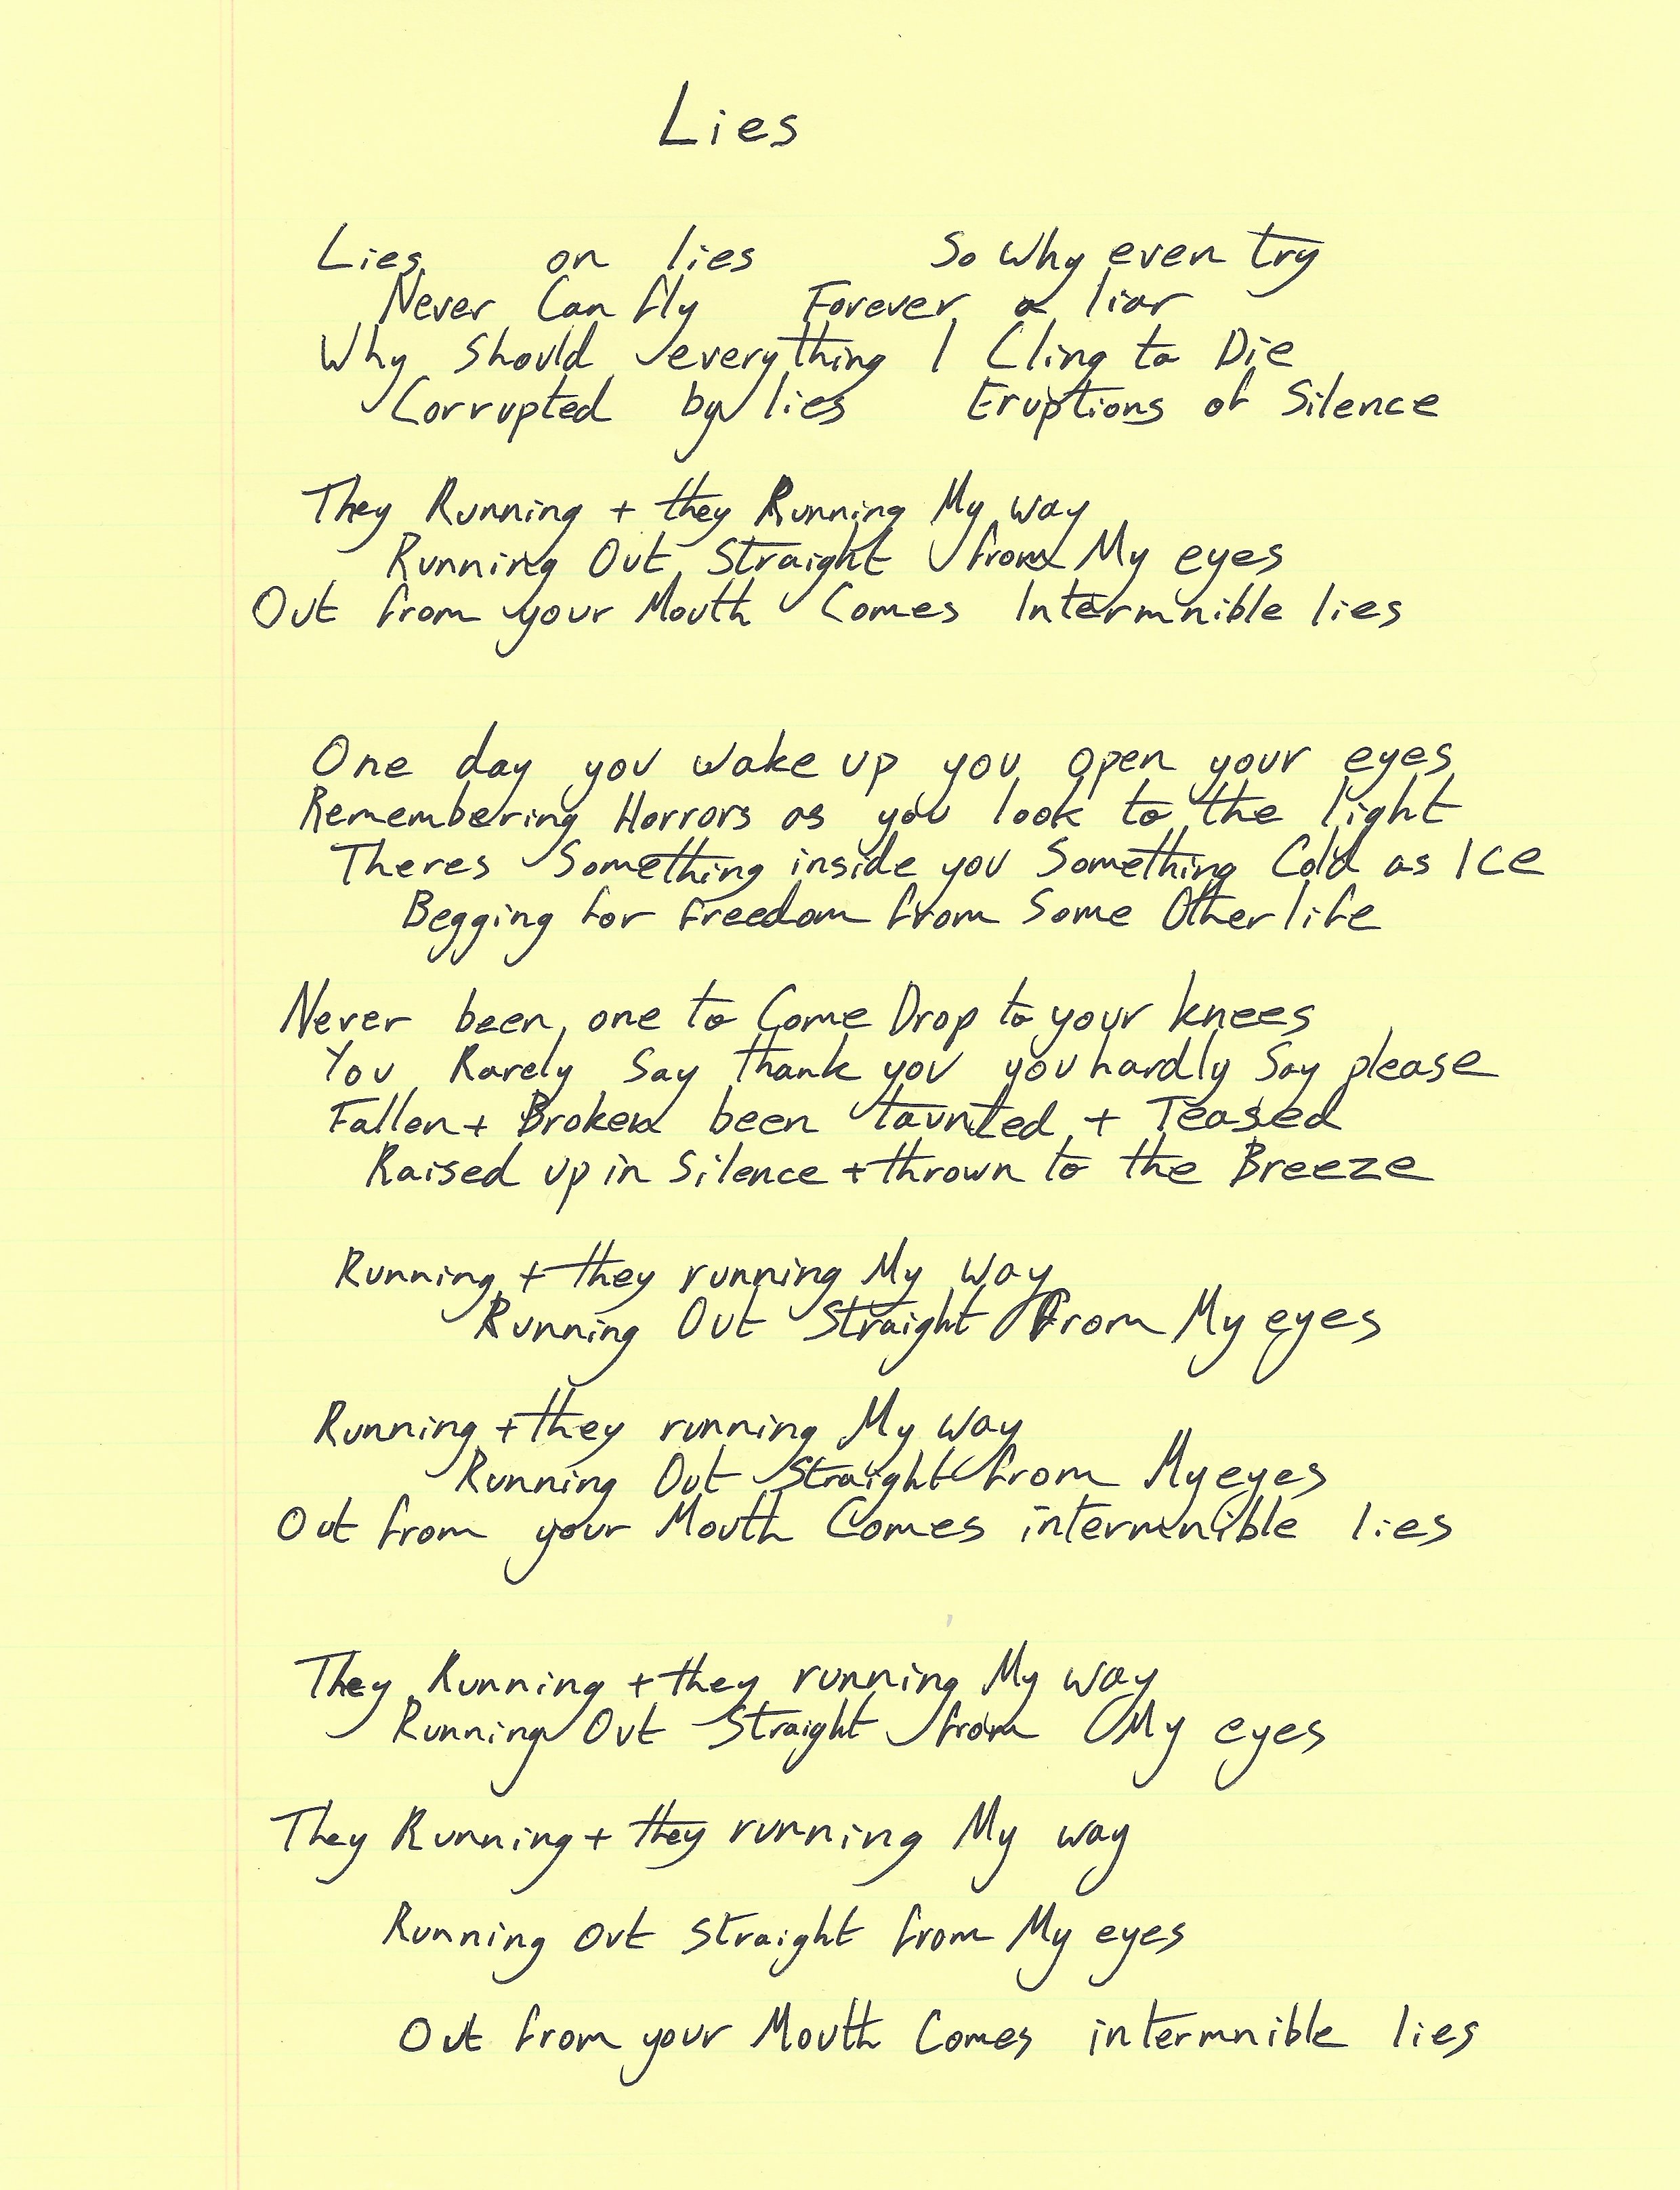 Lies
Lies on lies So Why even try
Never Can fly Forever a liar
Why Should everything I Cling to Die
Corrupted by lies Eruptions of Silence
They Running + they Running My way
Running Out Straight from My eyes
Out from your Mouth Comes Intermnible lies
One day you wake up you open your eyes
Remembering Horrors as you look to the light
Theres Something inside you Something Cold as ICE
Begging for freedom from Some Other life
Never been one to Come Drop to your knees
You Rarely Say thank you you hardly Say please
Fallen + Broken been taunted + Teased
Raised up in Silence + thrown to the Breeze
Running + they running My Way
Running Out Straight From My eyes
Running + they running My Way
Running Out Straight from My eyes
Out from your Mouth Comes intermnible lies
They Running + they running My way
Running Out Straight from My eyes
They Running + they running My way
Running out straight from My eyes
Out from your Mouth Comes intermnible lies